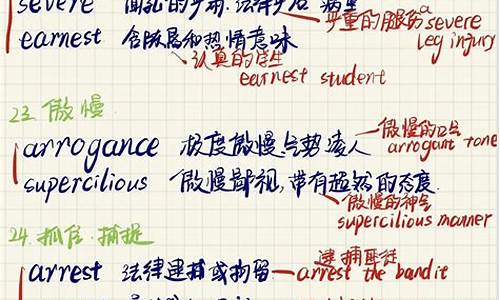 severe
严重的腿伤 a severe leg injury
earnest 含殷局和热情意味
认真的学生
earnest student
23. 傲慢
arrogance 极度傲慢.气势凌人
傲慢的口气
arrogant tone
supercilious 傲慢鄙视,带有超然的态度
傲慢的神气
supercilious manner
24. 抓住.捕捉
arrest 法律逮捕或拘留
逮捕匪徒
arrest the bandit